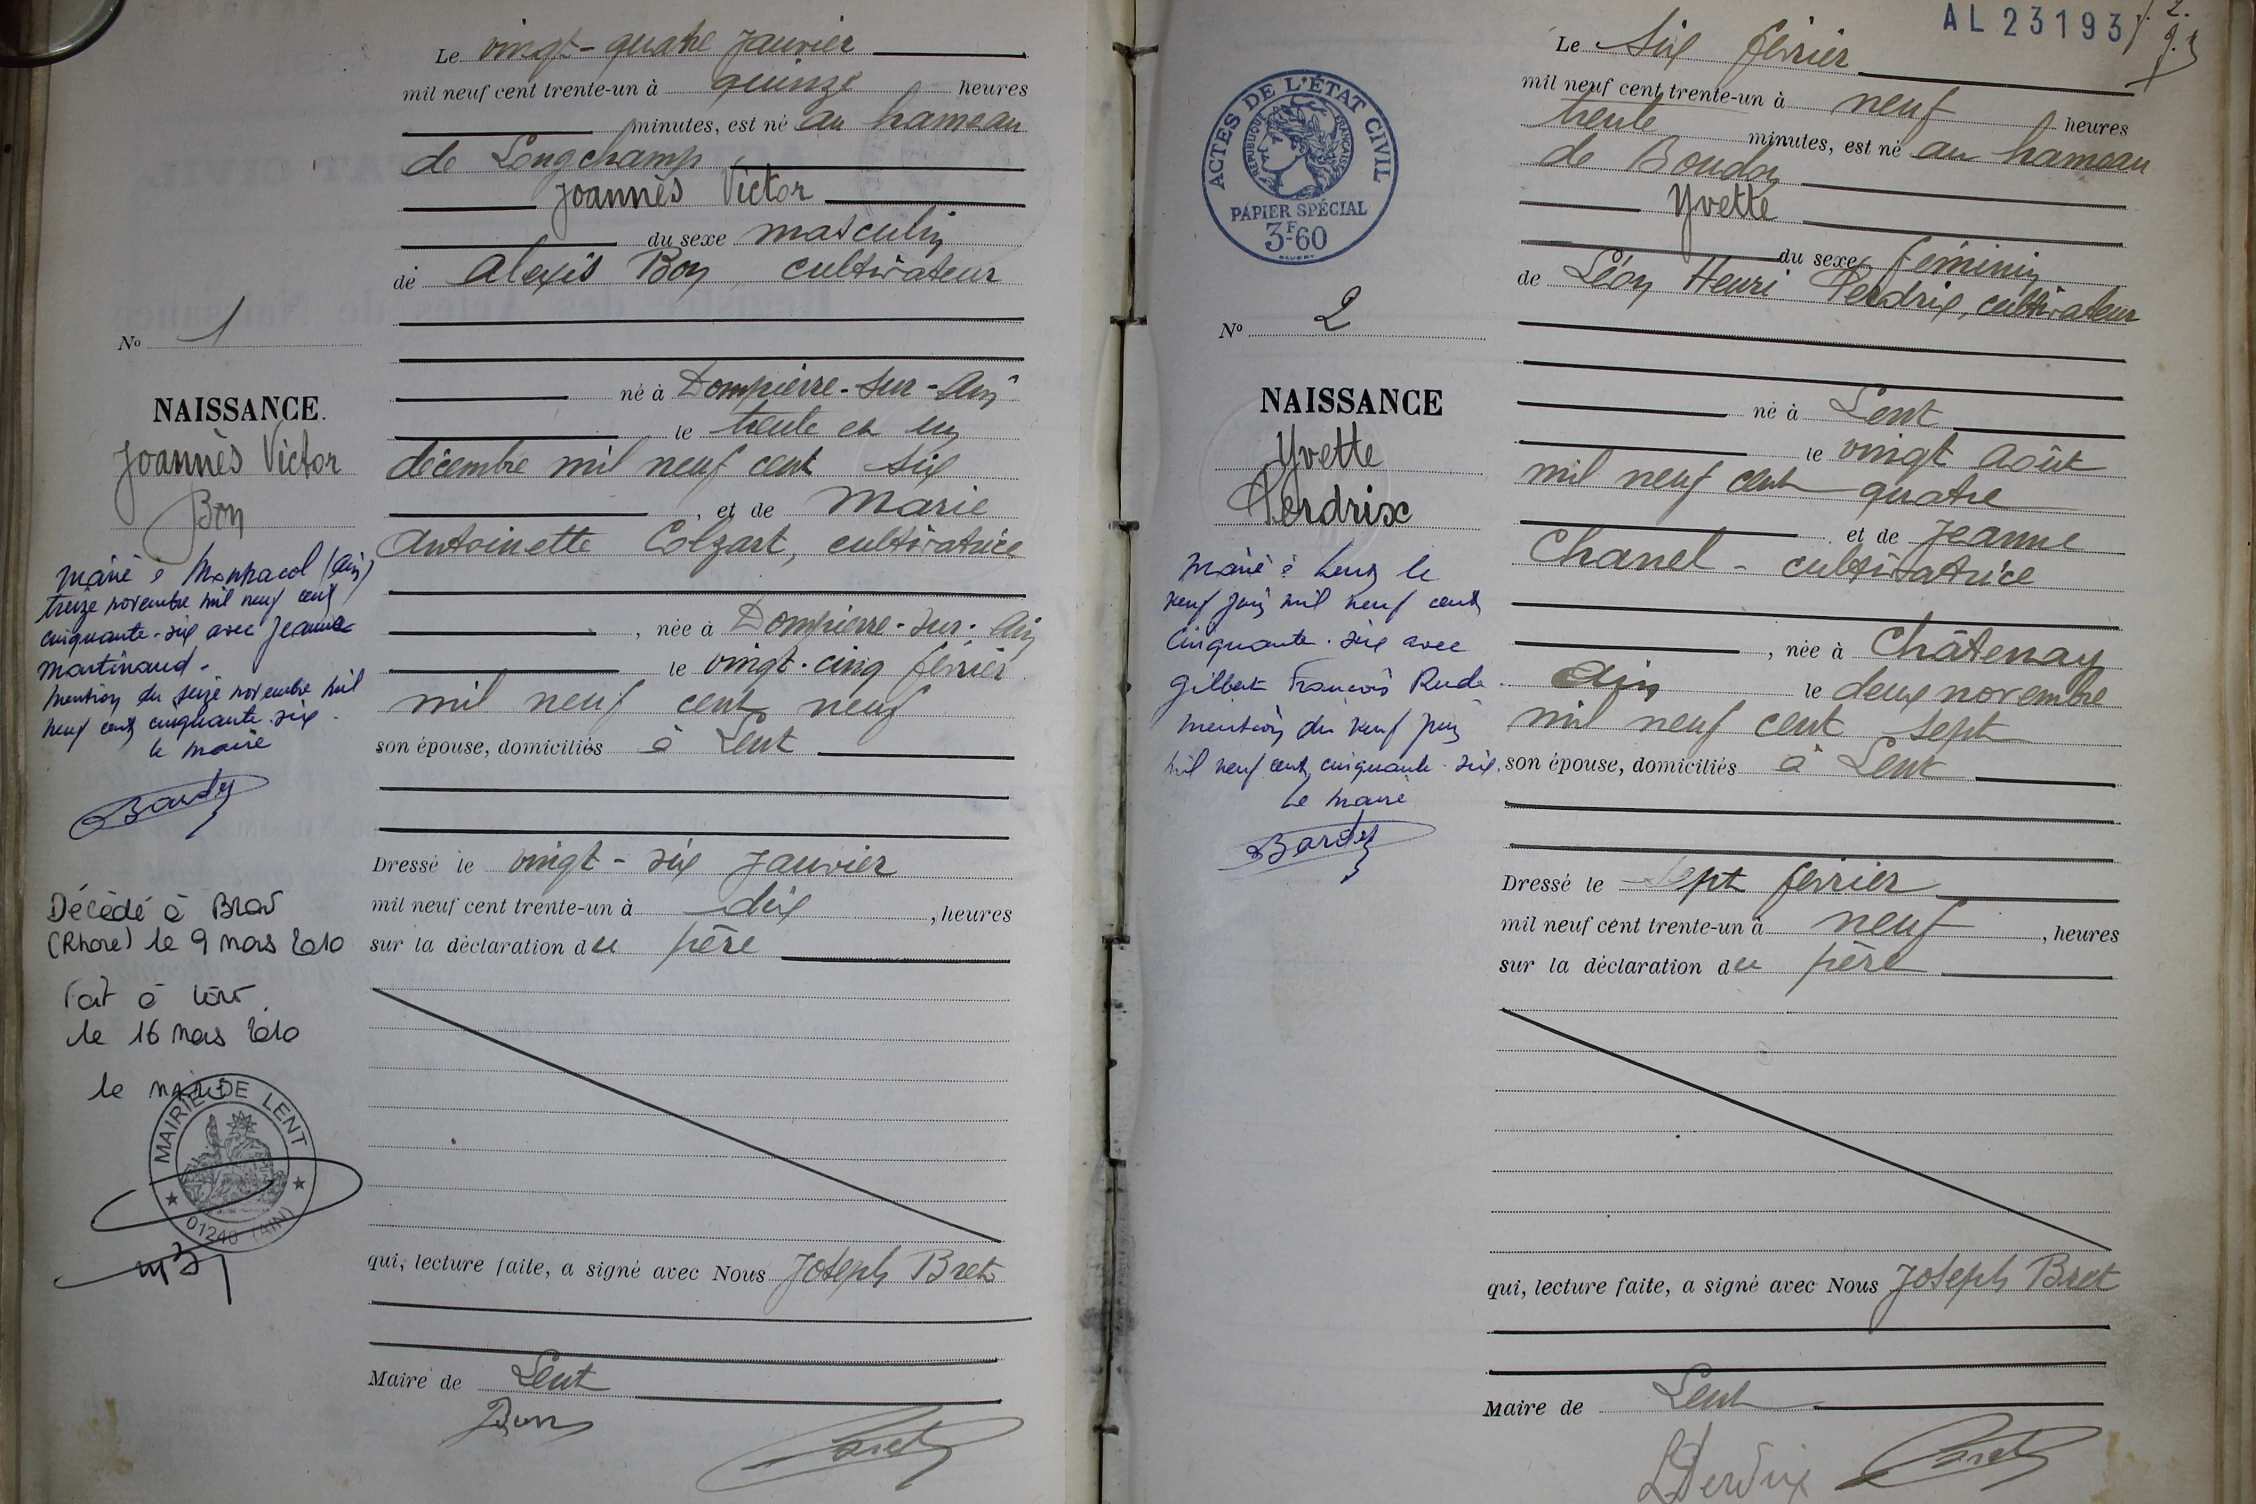 Le vingt-quatre Janvier
mil neuf cent trente-un à quinze heures
minutes, est né au hameau
de Longchamp,
Joannès Victor
du sexe masculin
de Alexis Bon, cultivateur
né à Dompierre-sur-Ain
le trente et un
décembre mil neuf cent six
, et de Marie
Antoinette Colzart, cultivatrice
, née à Dompierre-sur-Ain
le vingt-cinq février
mil neuf cent neuf
son épouse, domiciliés à Lent
Dressé le vingt-six Janvier
mil neuf cent trente-un à dix, heures
sur la déclaration du père
qui, lecture faite, a signé avec Nous Joseph Bret
Maire de Lent
Bon
Bret
No 1
NAISSANCE.
Joannès Victor
Bon
Marié à (Ain)
treize novembre mil neuf cent
cinquante-six avec Jeanne
Martinand.
Mention du seize novembre mil
neuf cent cinquante-six.
le maire
Bardet
Décédé à Bron
(Rhone) le 9 mars 2010
Fait à Lent
le 16 mars 2010
le maire
MAIRIE DE LENT
01240 (AIN)
AL 23193
2.
Le six février
mil neuf cent trente-un à neuf heures
trente minutes, est né au hameau
de Boudon
Yvette
du sexe féminin
de Léon Henri Perdrix, cultivateur
né à Lent
le vingt août
mil neuf cent quatre
et de Jeanne
Chanel - cultivatrice
, née à Châtenay
Ain le deux novembre
mil neuf cent sept
son épouse, domiciliés à Lent
Dressé le sept février
mil neuf cent trente-un à neuf, heures
sur la déclaration du père
qui, lecture faite, a signé avec Nous Joseph Bret
Maire de Lent
LPerdrix
Bret
ACTES DE L'ÉTAT CIVIL
RÉPUBLIQUE FRANÇAISE
PAPIER SPÉCIAL
3F-60
No 2
NAISSANCE
Yvette
Perdrix
Marié à Lent le
neuf juin mil neuf cent
cinquante-six avec
Gilbert François Rude.
Mention du neuf juin
mil neuf cent cinquante-six.
Le Maire
Bardet